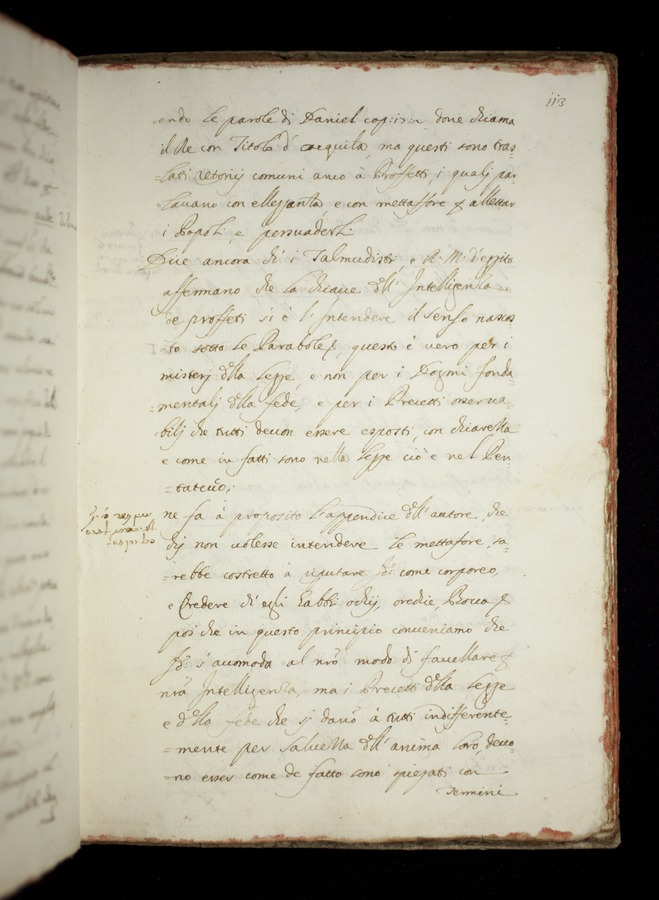 113
endo le parole di Daniel cap: doue chiama
il Re con Titolo d' aquila, ma questi sono tras=
=lati retorij comuni anco à Proffetti, i qualj par=
=lauano con elleganza, e con mettafore p allettar
i Popoli, e persuaderli.
Dice ancora ch' i Talmudisti, e R. M. d'eggito
affermano che la chiaue dell' Intelligenza
de proffeti si è l' Intendere il senso nasco=
=to sotto le Parabole, questo è vero per i
misterj della legge, e non per i Dogmi fonda=
=mentalj della fede, e per i Precetti osserua=
=bilj che tutti deuon essere esposti con chiarezza
e come in fatti sono nella legge ciò è nel Pen=
=tateuco.
ne fa à proposito l'appendice dell' autore, che
chj non volesse intendere le mettafore, sa=
=rebbe costretto à riputare Id: come corporeo,
e credere ch' egli habbi ochij, orechie, Bocca &
poi che in questo principio conueniamo che
Id: s' accomoda al nrõ modo di fauellare &
nrã Intelligenza, ma i Precetti della legge
e della fede che si danõ à tutti indifferente=
=mente per saluezza dell' anima loro, deuo=
=no esser come de fatto sono spiegati con
Termini